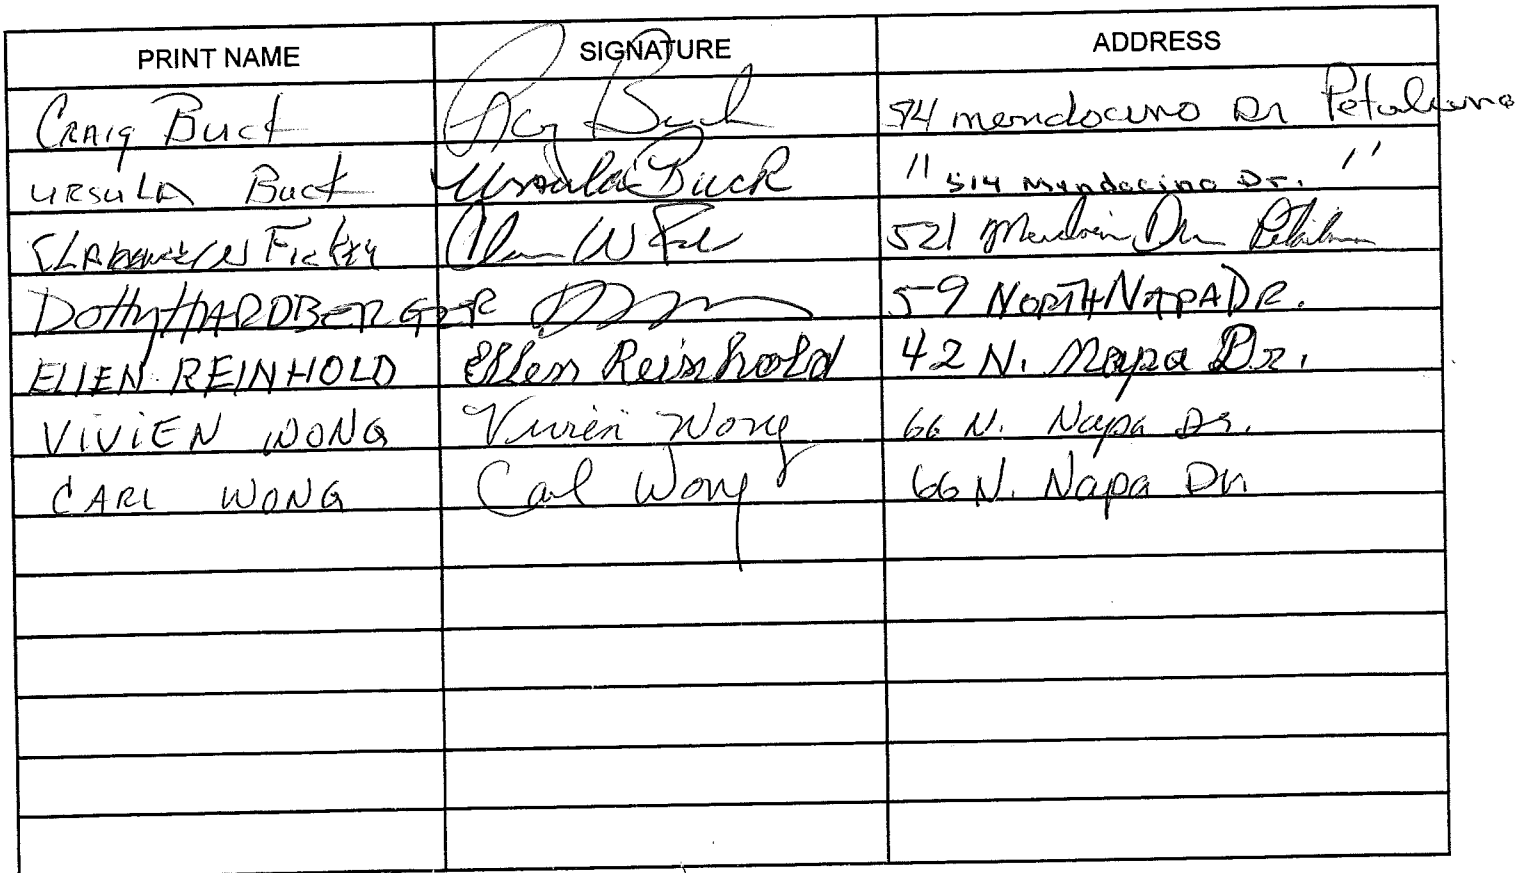 PRINT NAME SIGNATURE ADDRESS
CRAIG Buck Buck 514 mendocino Dr Petaluma
URSULA Buck Ursula Buck " 514 Mendocino Dr. "
W 521 Petaluma
Dotty HARDBERGER 59 NORTH NAPA DR.
ELLEN REINHOLD Ellen Reinhold 42 N. Napa Dr.
ViViEN WONG Vivien Wong 66 N. Napa Dr.
CARL WONG Carl Wong 66 N. Napa Dr.